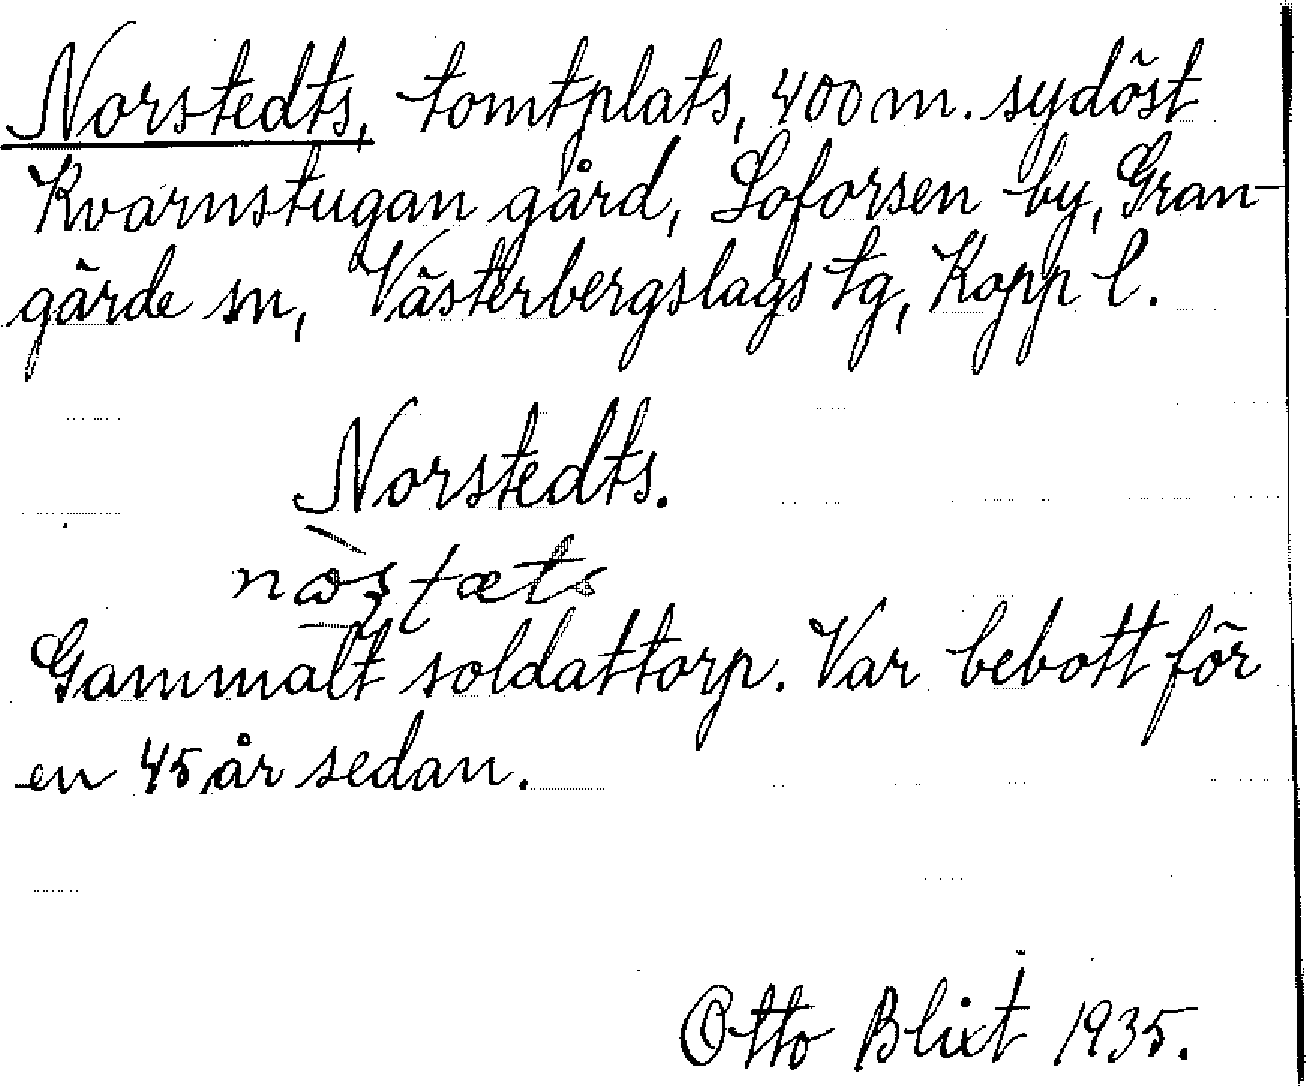 Norstedts, tomtplats, 400 m. sydöst
Kvarnstugan gård, Loforsen by, Gran-
gärde sn, Västerbergslags tg, Kopp l.
Norstedts.
Gammalt soldattorp. Var bebott för
en 45 år sedan.
Otto Blixt 1935.